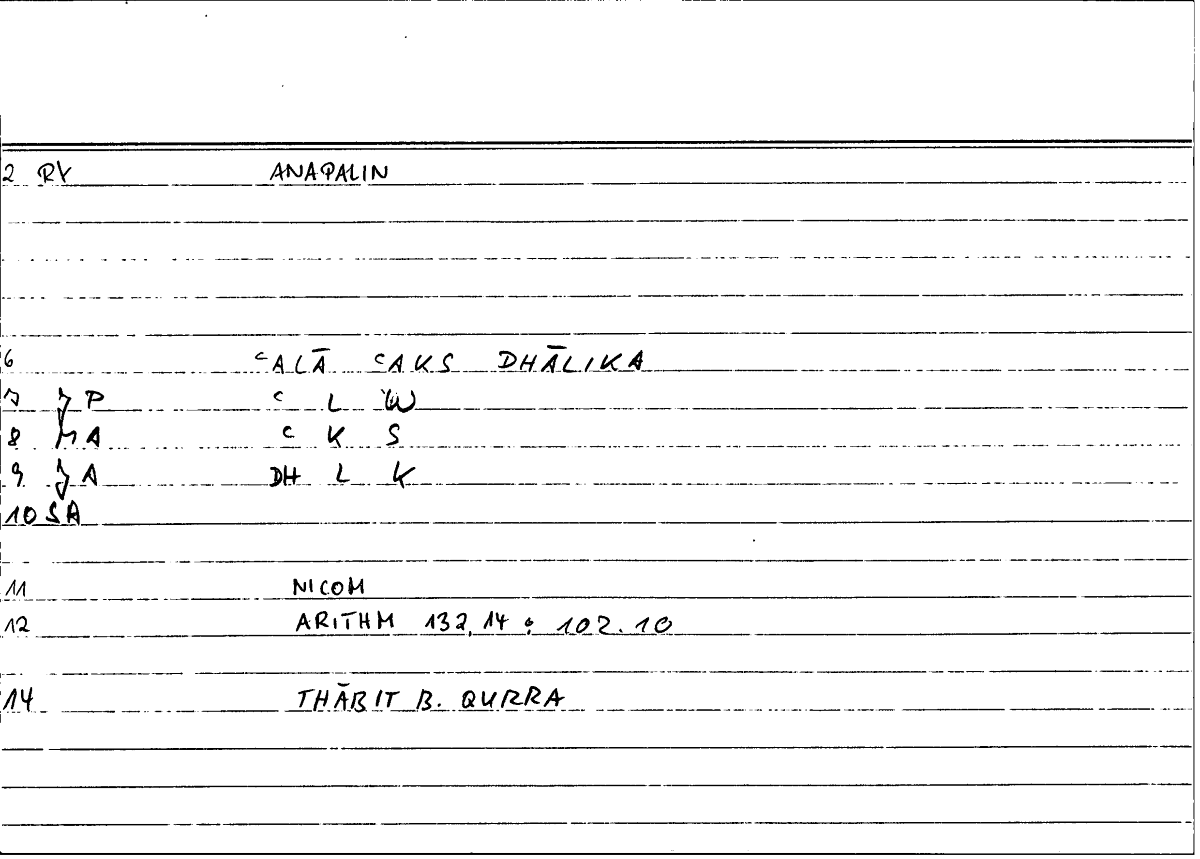 2 RV ANAPALIN
6 ʿALĀ ʿAKS DHĀLIKA
7 JP ʿ L W
8 MA ʿ K S
9 JA DH L K
10 SA
11 NICOM
12 ARITHM 132,14 : 102.10
14 THĀBIT B. QURRA